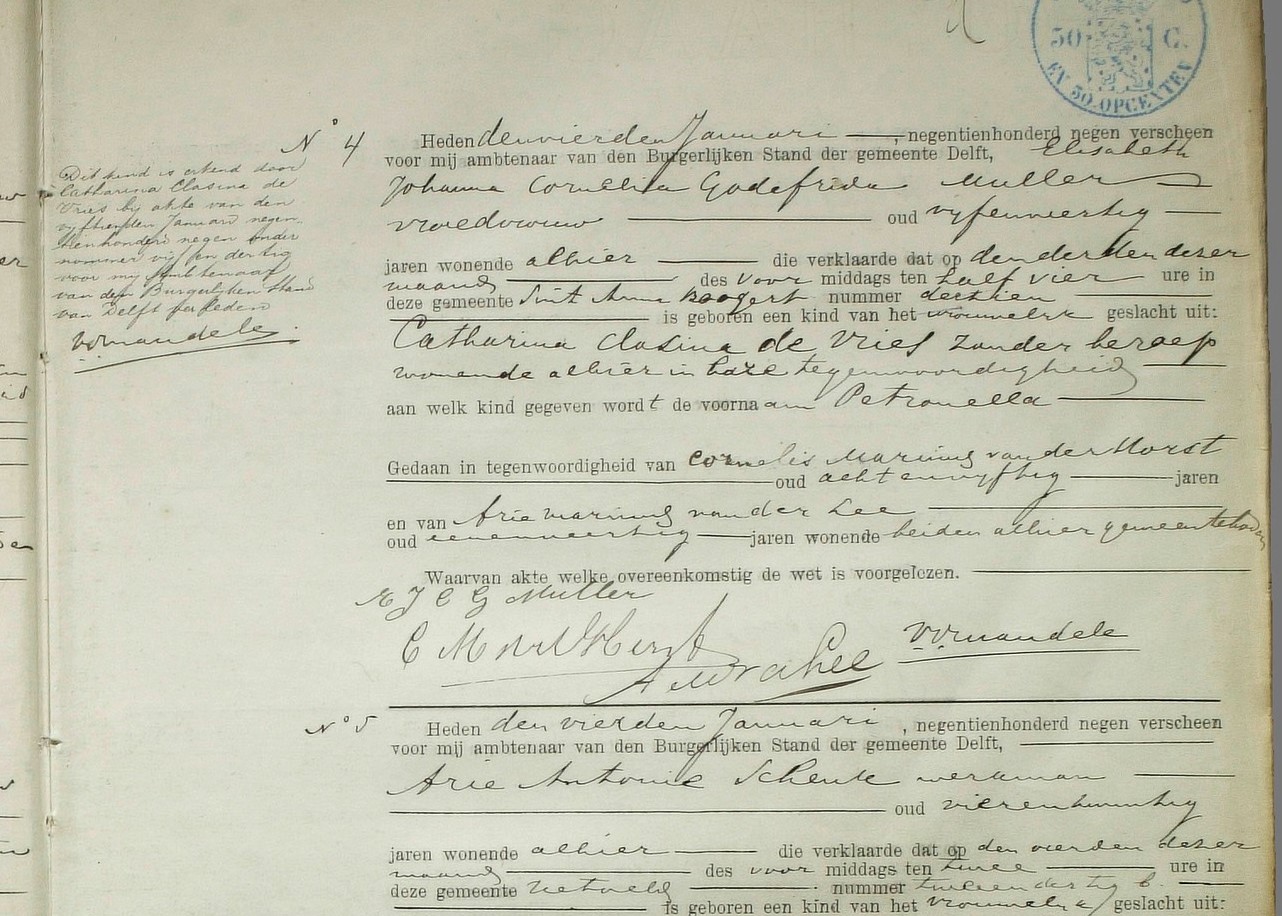 50 C.
EN 50 OPCENTEN
No 4
Heden den vierden Januari, negentienhonderd negen verscheen
voor mij ambtenaar van den Burgerlijken Stand der gemeente Delft, Elisabeth
Johanna Cornelia Godefrida Muller
vroedvrouw oud vyfenveertig
jaren wonende alhier die verklaarde dat op den derden dezer
maand des voor middags ten half vier ure in
deze gemeente Sint Anna Boogert nummer dertien
is geboren een kind van het vrouwelyk geslacht uit:
Catharina Clasina de Vries zonder beroep
wonende alhier in hare tegenwoordigheid
aan welk kind gegeven wordt de voornaam Petronella
Gedaan in tegenwoordigheid van Cornelis Marinus van der Horst
oud acht en vyftig jaren
en van Arie Marinus van der Lee
oud eenenveertig jaren wonende beiden alhier gemeentebode
Waarvan akte welke overeenkomstig de wet is voorgelezen.
E J C G Muller
C M v d Horst
A M v d Lee
Dit kind is erkend door
Catharina Clasina de
Vries by akte van den
vyftienden Januari negen-
tienhonderd negen onder
nommer vyf en dertig
voor my Ambtenaar
van den Burgerlyken Stand
van Delft verleden
No 5
Heden den vierden Januari, negentienhonderd negen verscheen
voor mij ambtenaar van den Burgerlijken Stand der gemeente Delft,
Arie Antonie Schenk werkman
oud vierentwintig
jaren wonende alhier die verklaarde dat op den vierden dezer
maand des voor middags ten twee ure in
deze gemeente nummer tweeendertig b.
is geboren een kind van het vrouwelyk geslacht uit: